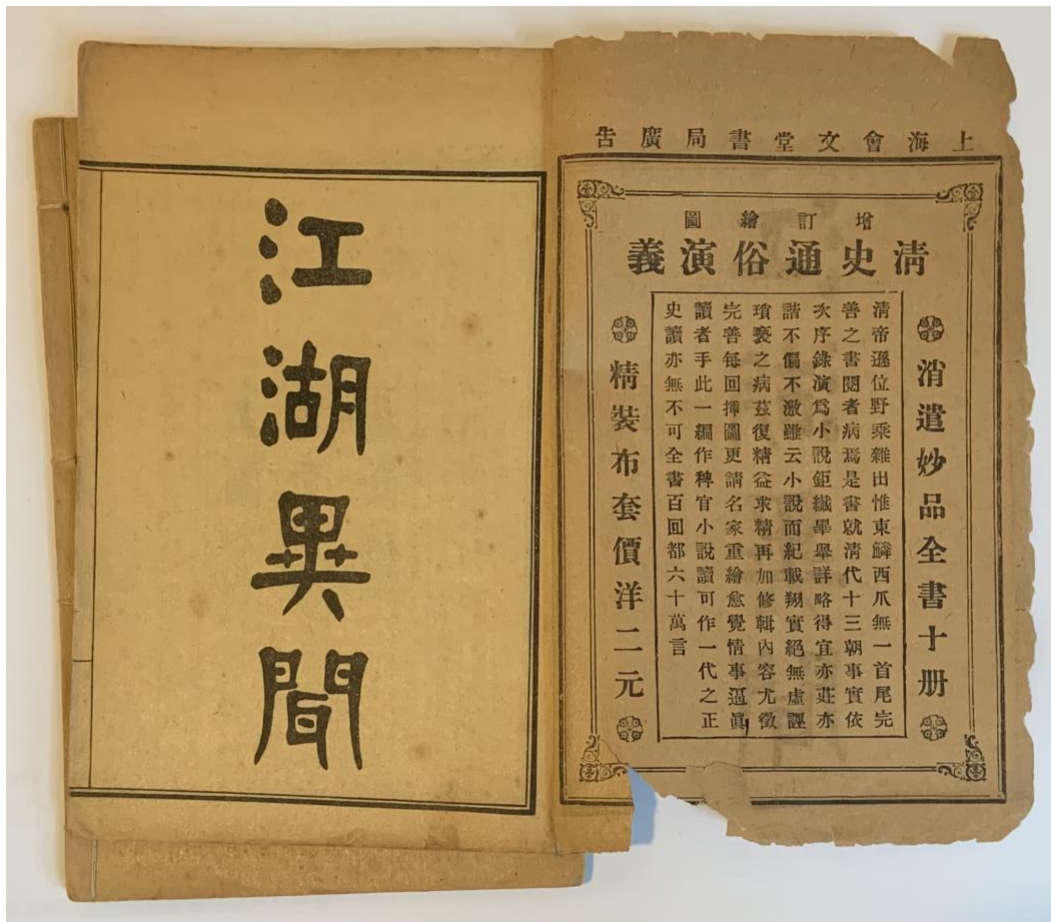 上海會文堂書局廣告
增訂繪圖
清史通俗演義
消遣妙品全書十册
清帝遜位野乘雜出惟東鱗西爪無一首尾完
善之書閱者病焉是書就清代十三朝事實依
次序錄演爲小說鉅纖畢舉詳略得宜亦莊亦
諧不偏不激雖云小說而紀載翔實絕無虛誣
瑣褻之病茲復精益求精再加修輯內容尤徵
完善每回揷圖更請名家重繪愈覺情事逼眞
讀者手此一編作稗官小說讀可作一代之正
史讀亦無不可全書百回都六十萬言
精裝布套價洋二元
江湖異聞